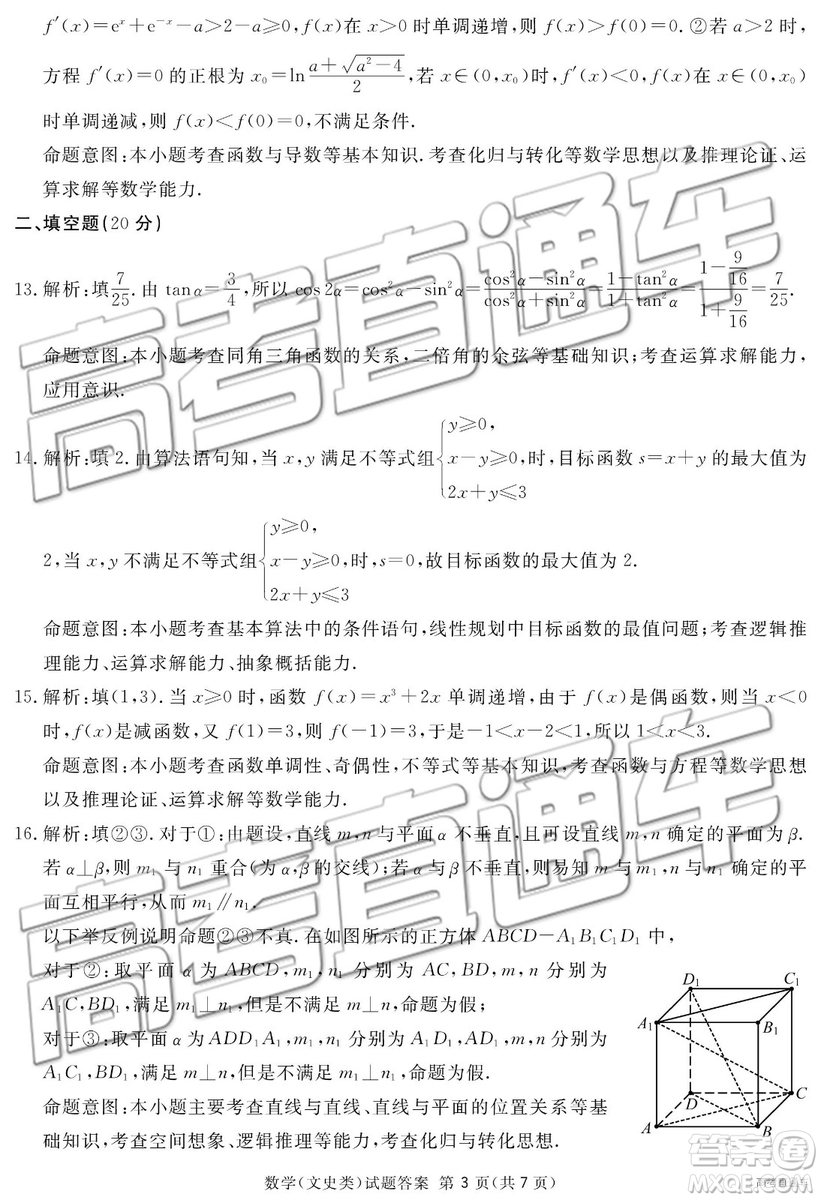 f′(x)=eˣ+e⁻ˣ−a>2−a≥0,f(x)在 x>0 时单调递增,故 f(x)>f(0)=0. ②若 a>2 时,
方程 f′(x)=0 的正根为 x₀=ln (a+√(a²−4))/2,若 x∈(0,x₀)时,f′(x)<0,f(x)在
时单调递减,则 f(x)<f(0)=0,不满足条件.
命题意图:本小题考查函数与导数等基本知识.考查化归与转化等数学思想以及推理论证、运
算求解等数学能力.
二、填空题(20 分)
13.解析:填 7/25. 由 tanα=3/4,所以 cos2α=cos²α−sin²α=(cos²α−sin²α)/(cos²α+sin²α)=(1−tan²α)/(1+tan²α)=(1−9/16)/(1+9/16)=7/25.
命题意图:本小题考查同角三角函数的关系,二倍角的余弦等基础知识;考查运算求解能力,
应用意识.
14.解析:填 2. 由算法语句知,当 x,y 满足不等式组{y≥0, x−y≥0, 2x+y≤3 时,目标函数 s=x+y 的最大值为
2,当 x,y 不满足不等式组{y≥0, x−y≥0, 2x+y≤3 时,s=0,故目标函数的最大值为 2.
命题意图:本小题考查基本算法中的条件语句,线性规划中目标函数的最值问题;考查逻辑推
理能力、运算求解能力、抽象概括能力.
15.解析:填(1,3). 当 x≥0 时,函数 f(x)=x³+2x 单调递增,由于 f(x)是偶函数,则当 x<0
时,f(x)是减函数,又 f(1)=3,则 f(−1)=3,于是−1<x−2<1,所以 1<x<3.
命题意图:本小题考查函数单调性、奇偶性,不等式等基本知识;考查函数与方程等数学思想
以及推理论证、运算求解等数学能力.
16.解析:填②③. 对于①:由题设,直线 m,n 与平面 α 不垂直,且可设直线 m,n 确定的平面为 β.
若 α⊥β,则 m₁ 与 n₁ 重合(为 α,β 的交线);若 α 与 β 不垂直,则易知 m 与 m₁,n 与 n₁ 确定的平
面互相平行,从而 m₁∥n₁.
以下举反例说明命题②③不真. 在如图所示的正方体 ABCD−A₁B₁C₁D₁ 中,
对于②:取平面 α 为 ABCD,m₁,n₁ 分别为 AC,BD,m,n 分别为
A₁C,BD₁,满足 m₁⊥n₁,但是不满足 m⊥n,命题为假;
对于③:取平面 α 为 ADD₁A₁,m₁,n₁ 分别为 A₁D,AD₁,m,n 分别为
A₁C₁,BD₁,满足 m⊥n,但是不满足 m₁⊥n₁,命题为假.
命题意图:本小题主要考查直线与直线、直线与平面的位置关系等基
础知识,考查空间想象、逻辑推理等能力,考查化归与转化思想.
D₁
C₁
A₁
B₁
D
C
A
B
数学(文史类)试题答案 第 3 页(共 7 页)
高考直通车
高考直通车
答案圈